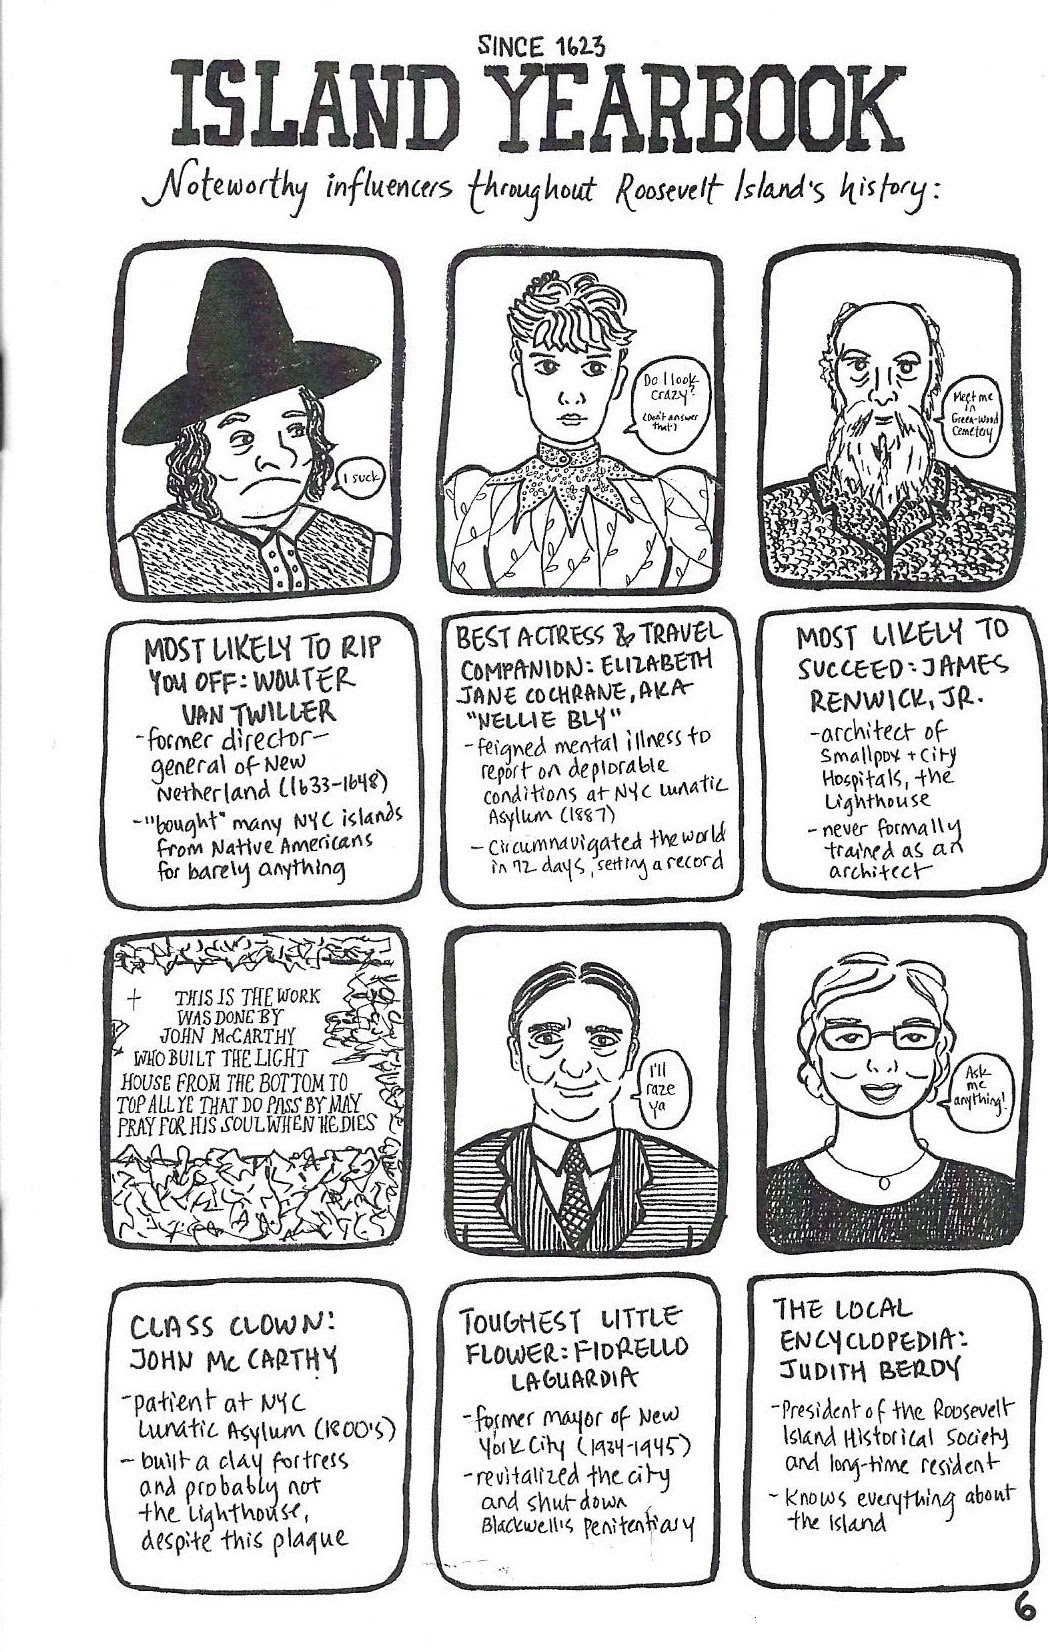 SINCE 1623
ISLAND YEARBOOK
Noteworthy influencers throughout Roosevelt Island's history:
I suck
Do I look
crazy?
(Don't answer
that)
Meet me
in
Green-Wood
Cemetery
MOST LIKELY TO RIP
YOU OFF: WOUTER
VAN TWILLER
-former director-
general of New
Netherland (1633-1648)
-"bought" many NYC islands
from Native Americans
for barely anything
BEST ACTRESS & TRAVEL
COMPANION: ELIZABETH
JANE COCHRANE, AKA
"NELLIE BLY"
-feigned mental illness to
report on deplorable
conditions at NYC Lunatic
Asylum (1887)
- Circumnavigated the world
in 72 days, setting a record
MOST LIKELY TO
SUCCEED: JAMES
RENWICK, JR.
-architect of
Smallpox + City
Hospitals, the
Lighthouse
- never formally
trained as an
architect
THIS IS THE WORK
WAS DONE BY
JOHN McCARTHY
WHO BUILT THE LIGHT
HOUSE FROM THE BOTTOM TO
TOP ALL YE THAT DO PASS BY MAY
PRAY FOR HIS SOUL WHEN HE DIES
I'll
raze
ya
Ask
me
anything!
CLASS CLOWN:
JOHN McCARTHY
-patient at NYC
Lunatic Asylum (1800's)
- built a clay fortress
and probably not
the Lighthouse,
despite this plaque
TOUGHEST LITTLE
FLOWER: FIORELLO
LAGUARDIA
-former mayor of New
York City (1934-1945)
-revitalized the city
and shut down
Blackwell's Penitentiary
THE LOCAL
ENCYCLOPEDIA:
JUDITH BERDY
-President of the Roosevelt
Island Historical Society
and long-time resident
- Knows everything about
the Island
6